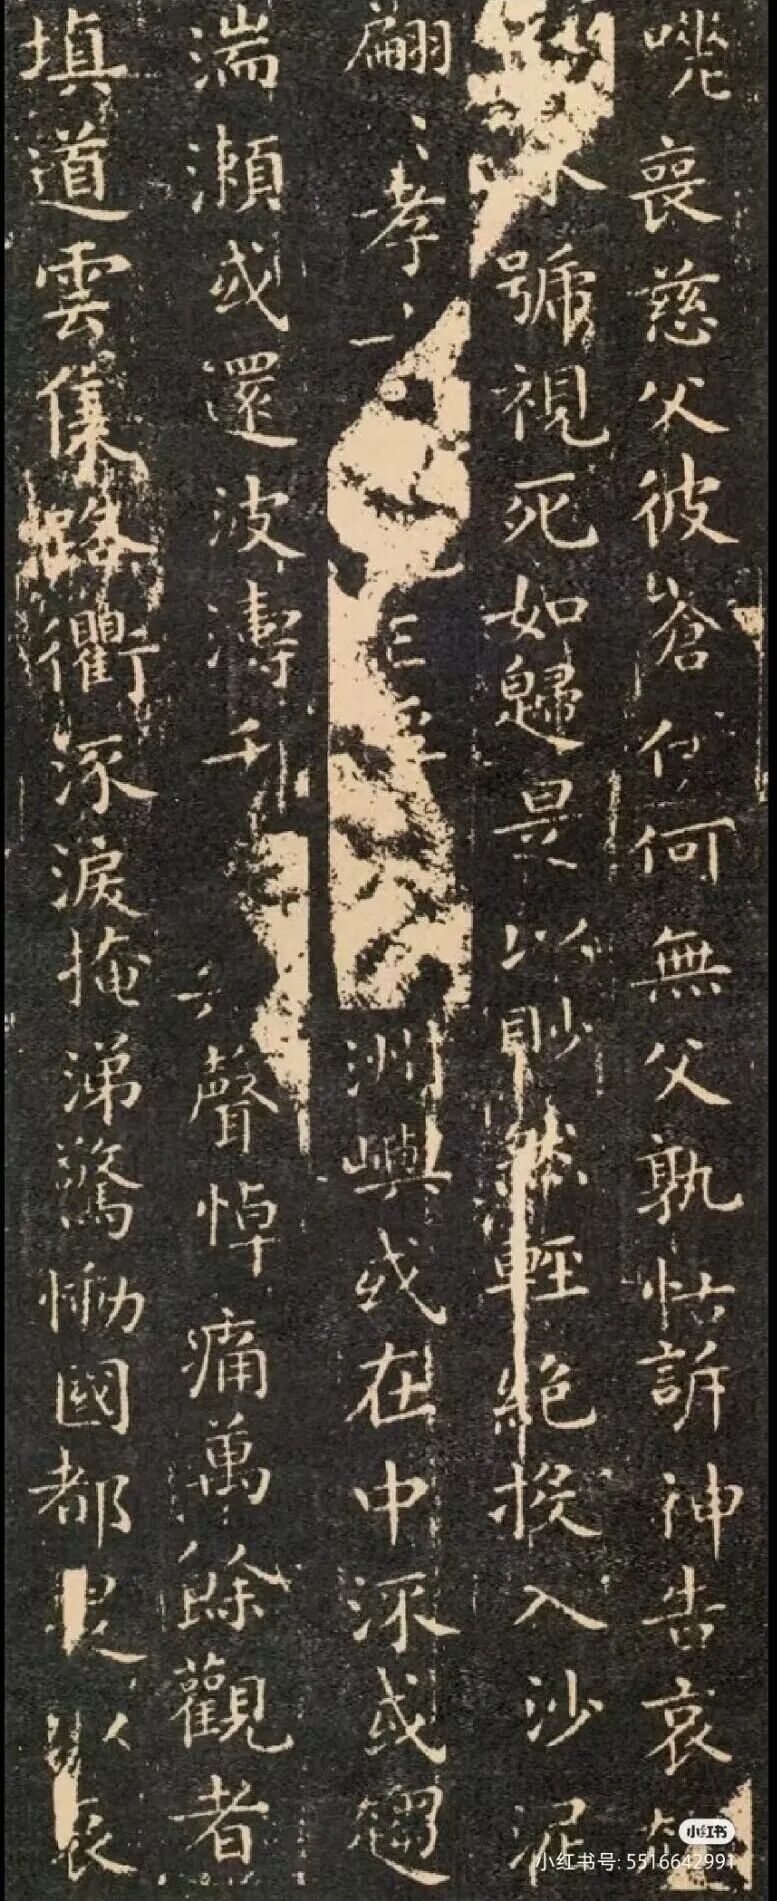 喪慈父彼蒼伊何無父孰怙訴神告哀
號視死如歸是以眇然輕絕投入沙泥
翩〻孝 洲嶼或在中流或趨
湍瀬或還波濤千 聲悼痛萬餘觀者
填道雲集路衢流淚掩涕驚慟國都是以哀
小红书
小红书号: 5516642991